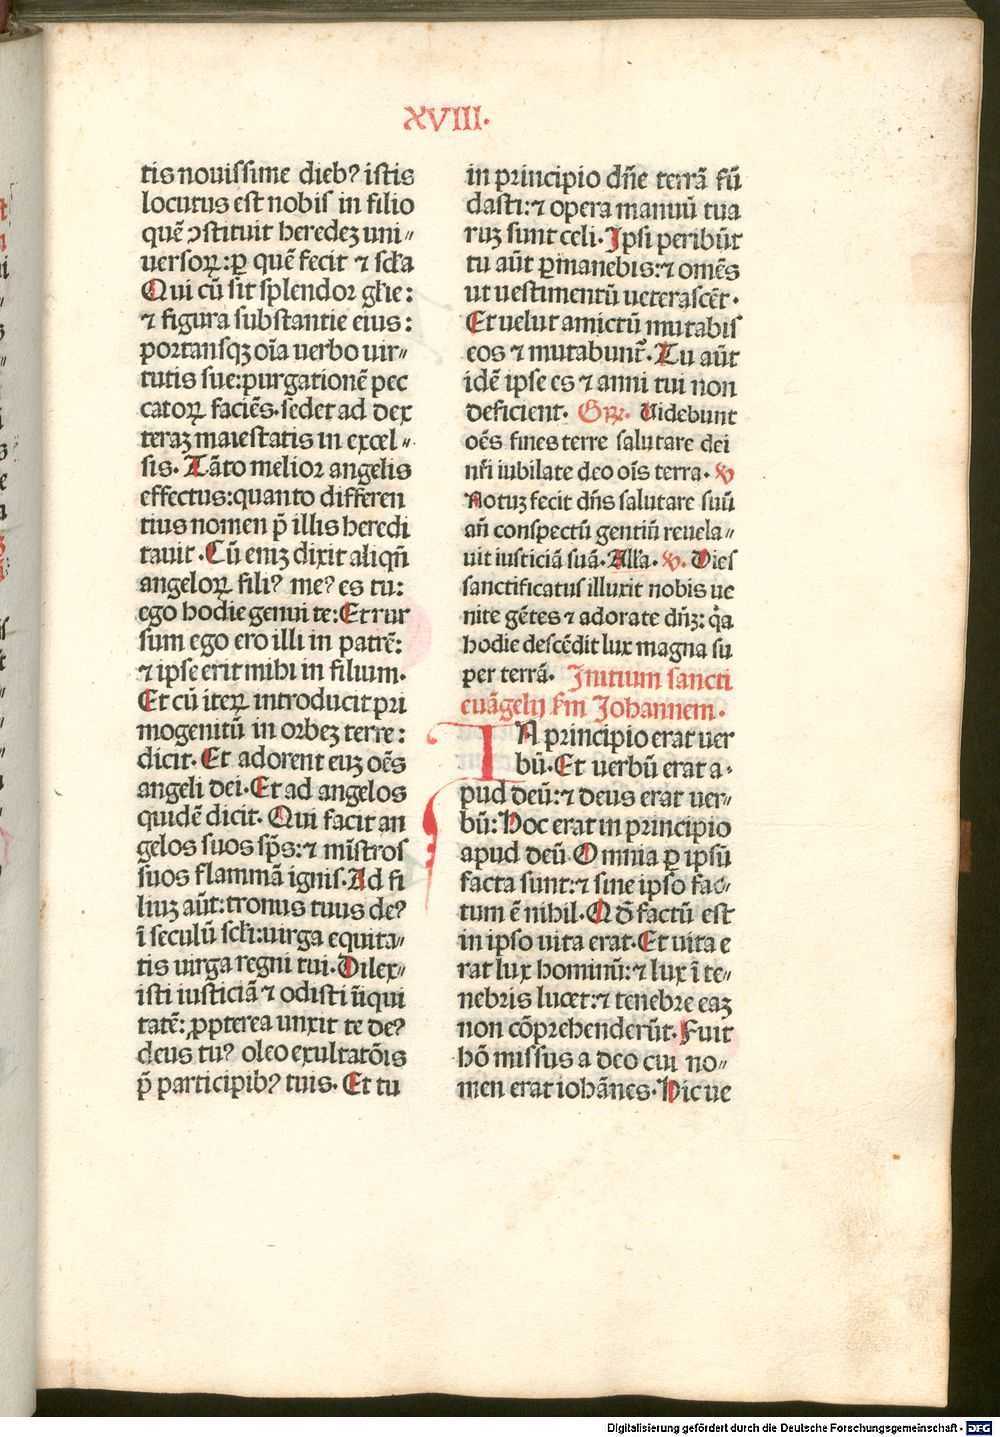 XVIII.
tis nouissime dieb⁹ istis
locutus est nobis in filio
quē ↄstituit heredeꝫ uni〃
uersoꝝ:ꝑ quē fecit ⁊ scl̄a
Qui cū sit splendor gl̄ie:
⁊ figura substantie eius:
portansqꝫ oīa uerbo uir〃
tutis sue:purgationē pec
catoꝝ faciēs.sedet ad dex
teraꝫ maiestatis in excel〃
sis. Tāto melior angelis
effectus:quanto differen
tius nomen p̄ illis heredi
tauit.Cū eniꝫ dixit aliqn̄
angeloꝝ fili⁹ me⁹ es tu:
ego hodie genui te:Et rur
sum ego ero illi in patrē:
⁊ ipse erit mihi in filium.
Et cū iteꝝ introducit pri
mogenitū in orbeꝫ terre:
dicit. Et adorent euꝫ oēs
angeli dei.Et ad angelos
quidē dicit. Qui facit an
gelos suos sp̄s:⁊ mīstros
suos flammā ignis.Ad fi
liuꝫ aūt:tronus tuus de⁹
ī seculū scl̄i:uirga equita〃
tis uirga regni tui.Dilex〃
isti iusticiā ⁊ odisti īiqui
tatē: ꝓpterea unxit te de⁹
deus tu⁹ oleo exultatōis
p̄ participib⁹ tuis. Et tu
in principio dn̄e terrā fū
dasti:⁊ opera manuū tua
ruꝫ sunt celi.Ipsi peribūt
tu aūt ꝑmanebis:⁊ omēs
ut uestimentū ueterascēt.
Et uelut amictū mutabis
eos ⁊ mutabunt̄.Tu aūt
idē ipse es ⁊ anni tui non
deficient. Gꝝ. Uidebunt
oēs fines terre salutare dei
nr̄i iubilate deo oīs terra. ℣
Notuꝫ fecit dn̄s salutare suū
an̄ conspectū gentiū reuela〃
uit iusticiā suā. All'a. ℣. Dies
sanctificatus illuxit nobis ue
nite gētes ⁊ adorate dn̄ꝫ: q̄a
hodie descēdit lux magna su
per terrā. Initium sancti
euāgelij scd̄m Johannem.
IN principio erat uer
bū.Et uerbū erat a〃
pud deū:⁊ deus erat uer〃
bū:Hoc erat in principio
apud deū.Omnia ꝑ ipsū
facta sunt:⁊ sine ipso fac〃
tum ē nihil.Qd̄ factū est
in ipso uita erat.Et uita e
rat lux hominū:⁊ lux ī te〃
nebris lucet:⁊ tenebre eaꝫ
non cōprehenderūt.Fuit
hō missus a deo cui no〃
men erat iohānes.Hic ue
Digitalisierung gefördert durch die Deutsche Forschungsgemeinschaft - DFG